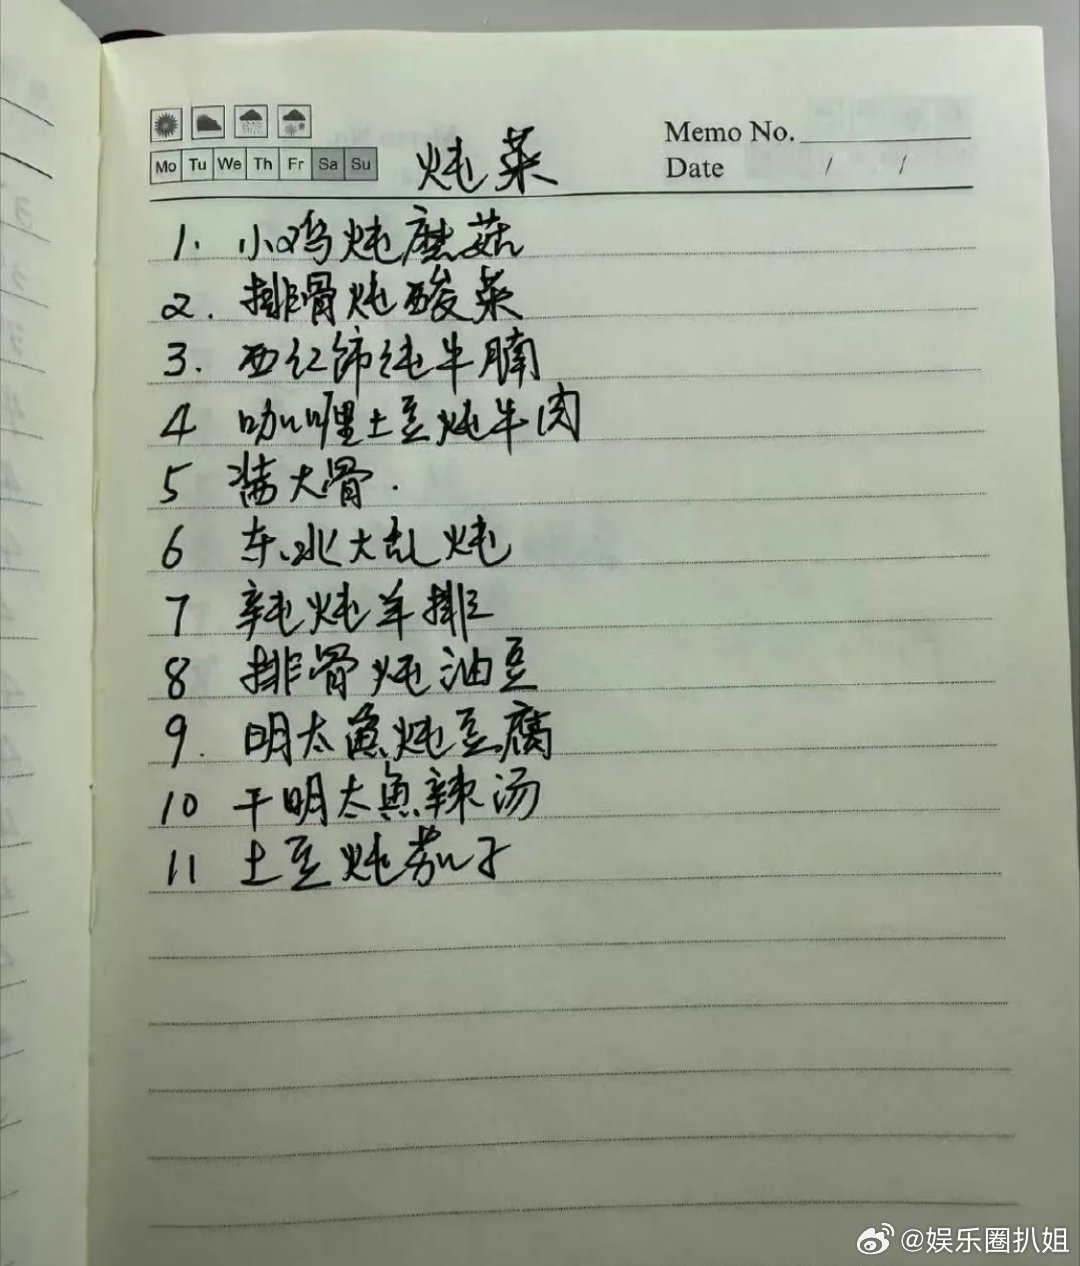 Mo Tu We Th Fr Sa Su
炖菜
Memo No.
Date / /
1. 小鸡炖蘑菇
2. 排骨炖酸菜
3. 西红饰炖牛腩
4 咖喱土豆炖牛肉
5 酱大骨.
6 东北大乱炖
7 炖羊排
8 排骨炖油豆
9. 明太鱼炖豆腐
10 干明太鱼辣汤
11 土豆炖茄子
@娱乐圈扒姐